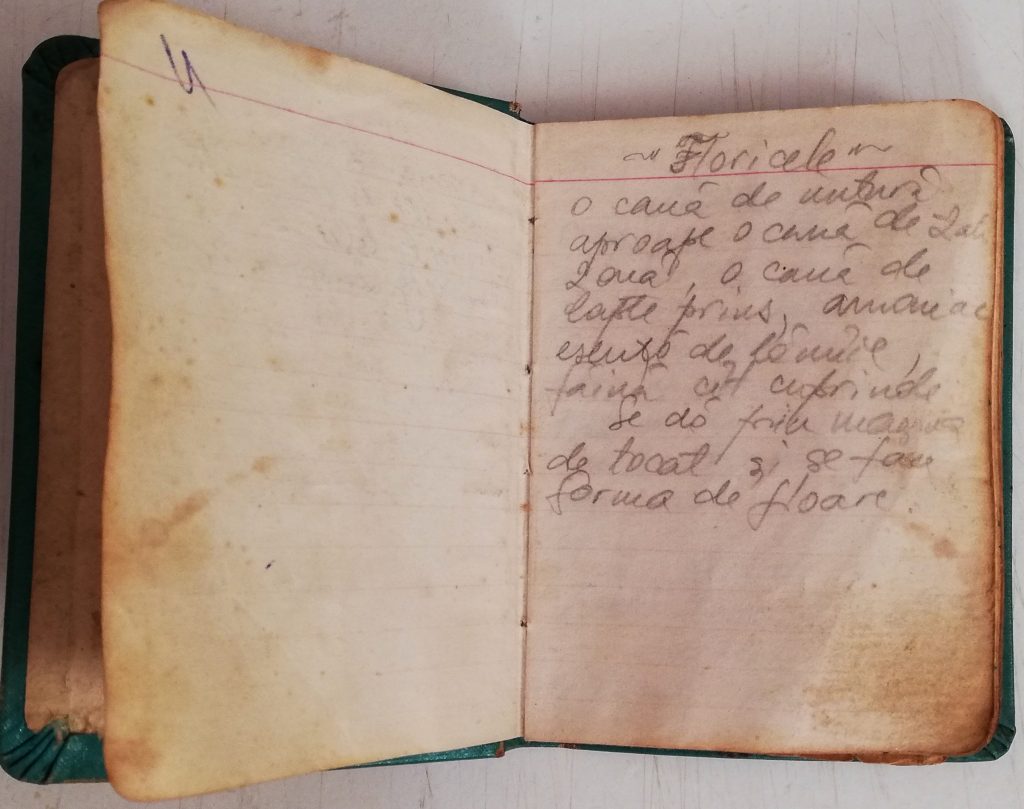 U
~"Floricele"~
o cană de untură
aproape o cană de zahăr
2 ouă, o cană de
lapte prins, amoniac
esență de lămîie,
făină cît cuprinde
Se dă prin mașina
de tocat și se face
forma de floare.